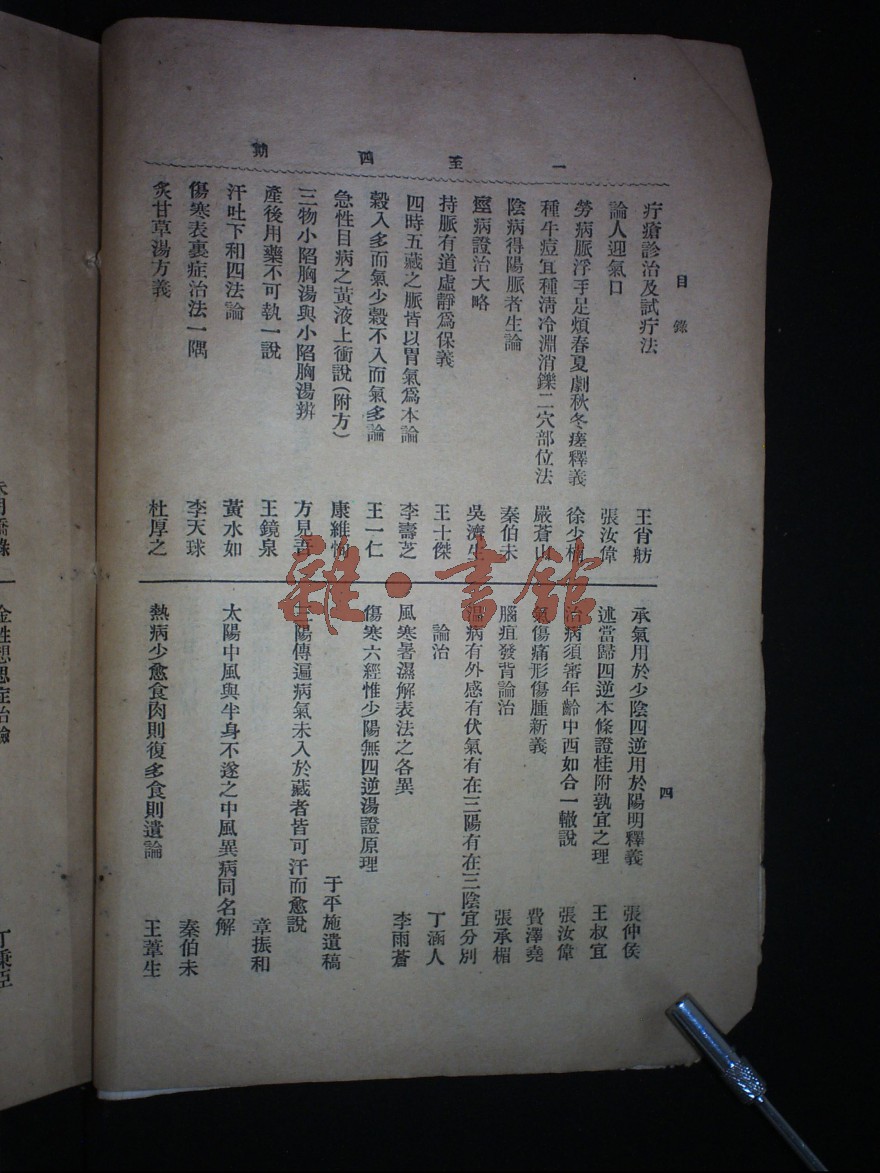 一至四期
目錄
四
疔瘡診治及試疔法 王肖舫
論人迎氣口 張汝偉
勞病脈浮手足煩春夏劇秋冬瘥釋義 徐少楠
種牛痘宜種淸冷淵消鑠二穴部位法 嚴蒼山
陰病得陽脈者生論 秦伯未
瘧病證治大略 吳濟生
持脈有道虛靜爲保義 王士傑
四時五藏之脈皆以胃氣爲本論 李壽芝
穀入多而氣少穀不入而氣多論 王一仁
急性目病之黃液上衝說(附方) 康維恂
三物小陷胸湯與小陷胸湯辨 方見吾
產後用藥不可執一說 王鏡泉
汗吐下和四法論 黃水如
傷寒表裏症治法一隅 李天球
炙甘草湯方義 杜厚之
承氣用於少陰四逆用於陽明釋義 張仲侯
述當歸四逆本條證桂附孰宜之理 王叔宜
治病須審年齡中西如合一轍說 張汝偉
氣傷痛形傷腫新義 費澤堯
腦疽發背論治 張承楣
溫病有外感有伏氣有在三陽有在三陰宜分別
論治 丁涵人
風寒暑濕解表法之各異 李雨蒼
傷寒六經惟少陽無四逆湯證原理
于平施遺稿
三陽傳遍病氣未入於藏者皆可汗而愈說
章振和
太陽中風與半身不遂之中風異病同名解
秦伯未
熱病少愈食肉則復多食則遺論 王葦生
雜·書館